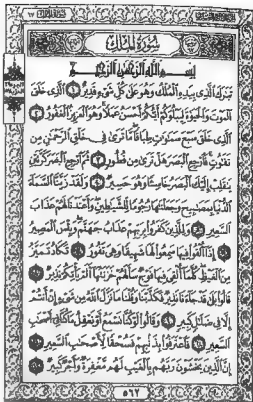 سُورَةُ المُلْكِ
بِسْمِ اللَّهِ الرَّحْمَٰنِ الرَّحِيمِ
تَبَٰرَكَ الَّذِى بِيَدِهِ الْمُلْكُ وَهُوَ عَلَىٰ كُلِّ شَىْءٍ قَدِيرٌ ١ الَّذِى خَلَقَ
الْمَوْتَ وَالْحَيَوٰةَ لِيَبْلُوَكُمْ أَيُّكُمْ أَحْسَنُ عَمَلًا وَهُوَ الْعَزِيزُ الْغَفُورُ ٢
الَّذِى خَلَقَ سَبْعَ سَمَٰوَٰتٍ طِبَاقًا مَّا تَرَىٰ فِى خَلْقِ الرَّحْمَٰنِ مِن
تَفَٰوُتٍ فَارْجِعِ الْبَصَرَ هَلْ تَرَىٰ مِن فُطُورٍ ٣ ثُمَّ ارْجِعِ الْبَصَرَ كَرَّتَيْنِ
يَنقَلِبْ إِلَيْكَ الْبَصَرُ خَاسِئًا وَهُوَ حَسِيرٌ ٤ وَلَقَدْ زَيَّنَّا السَّمَاءَ
الدُّنْيَا بِمَصَٰبِيحَ وَجَعَلْنَٰهَا رُجُومًا لِّلشَّيَٰطِينِ وَأَعْتَدْنَا لَهُمْ عَذَابَ
السَّعِيرِ ٥ وَلِلَّذِينَ كَفَرُوا بِرَبِّهِمْ عَذَابُ جَهَنَّمَ وَبِئْسَ الْمَصِيرُ
٦ إِذَا أُلْقُوا فِيهَا سَمِعُوا لَهَا شَهِيقًا وَهِىَ تَفُورُ ٧ تَكَادُ تَمَيَّزُ
مِنَ الْغَيْظِ كُلَّمَا أُلْقِىَ فِيهَا فَوْجٌ سَأَلَهُمْ خَزَنَتُهَا أَلَمْ يَأْتِكُمْ نَذِيرٌ ٨
قَالُوا بَلَىٰ قَدْ جَاءَنَا نَذِيرٌ فَكَذَّبْنَا وَقُلْنَا مَا نَزَّلَ اللَّهُ مِن شَىْءٍ إِنْ أَنتُمْ
إِلَّا فِى ضَلَٰلٍ كَبِيرٍ ٩ وَقَالُوا لَوْ كُنَّا نَسْمَعُ أَوْ نَعْقِلُ مَا كُنَّا فِى أَصْحَٰبِ
السَّعِيرِ ١٠ فَاعْتَرَفُوا بِذَنبِهِمْ فَسُحْقًا لِّأَصْحَٰبِ السَّعِيرِ ١١
إِنَّ الَّذِينَ يَخْشَوْنَ رَبَّهُم بِالْغَيْبِ لَهُم مَّغْفِرَةٌ وَأَجْرٌ كَبِيرٌ ١٢
٥٦٢